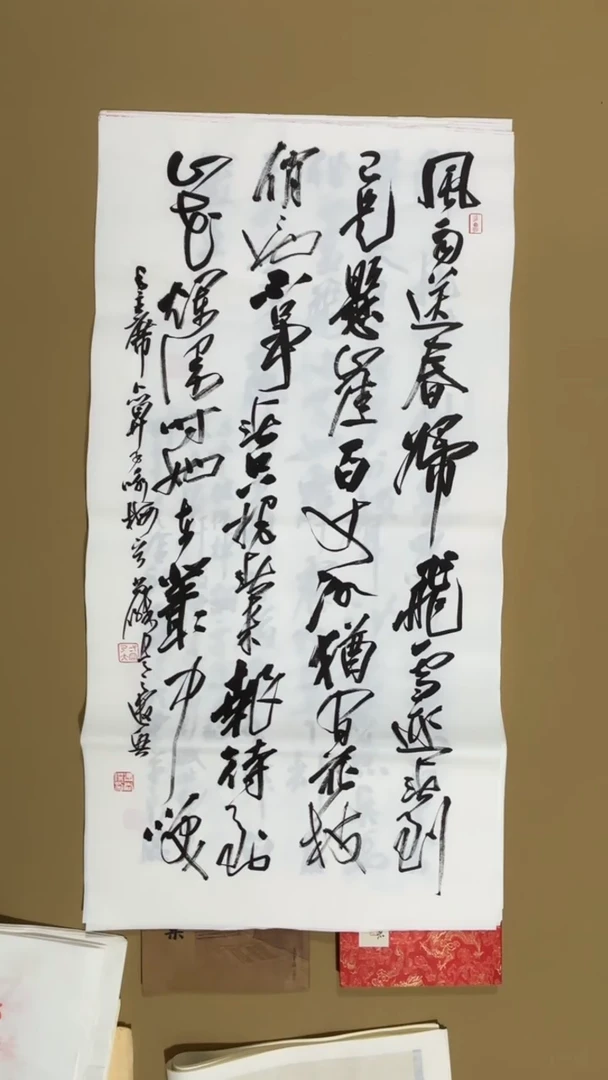 風雨送春歸飛雪迎春到
已是懸崖百丈冰猶有花枝
俏也不爭春只把春來報待到
山花爛漫時她在叢中笑
毛主席卜算子咏梅